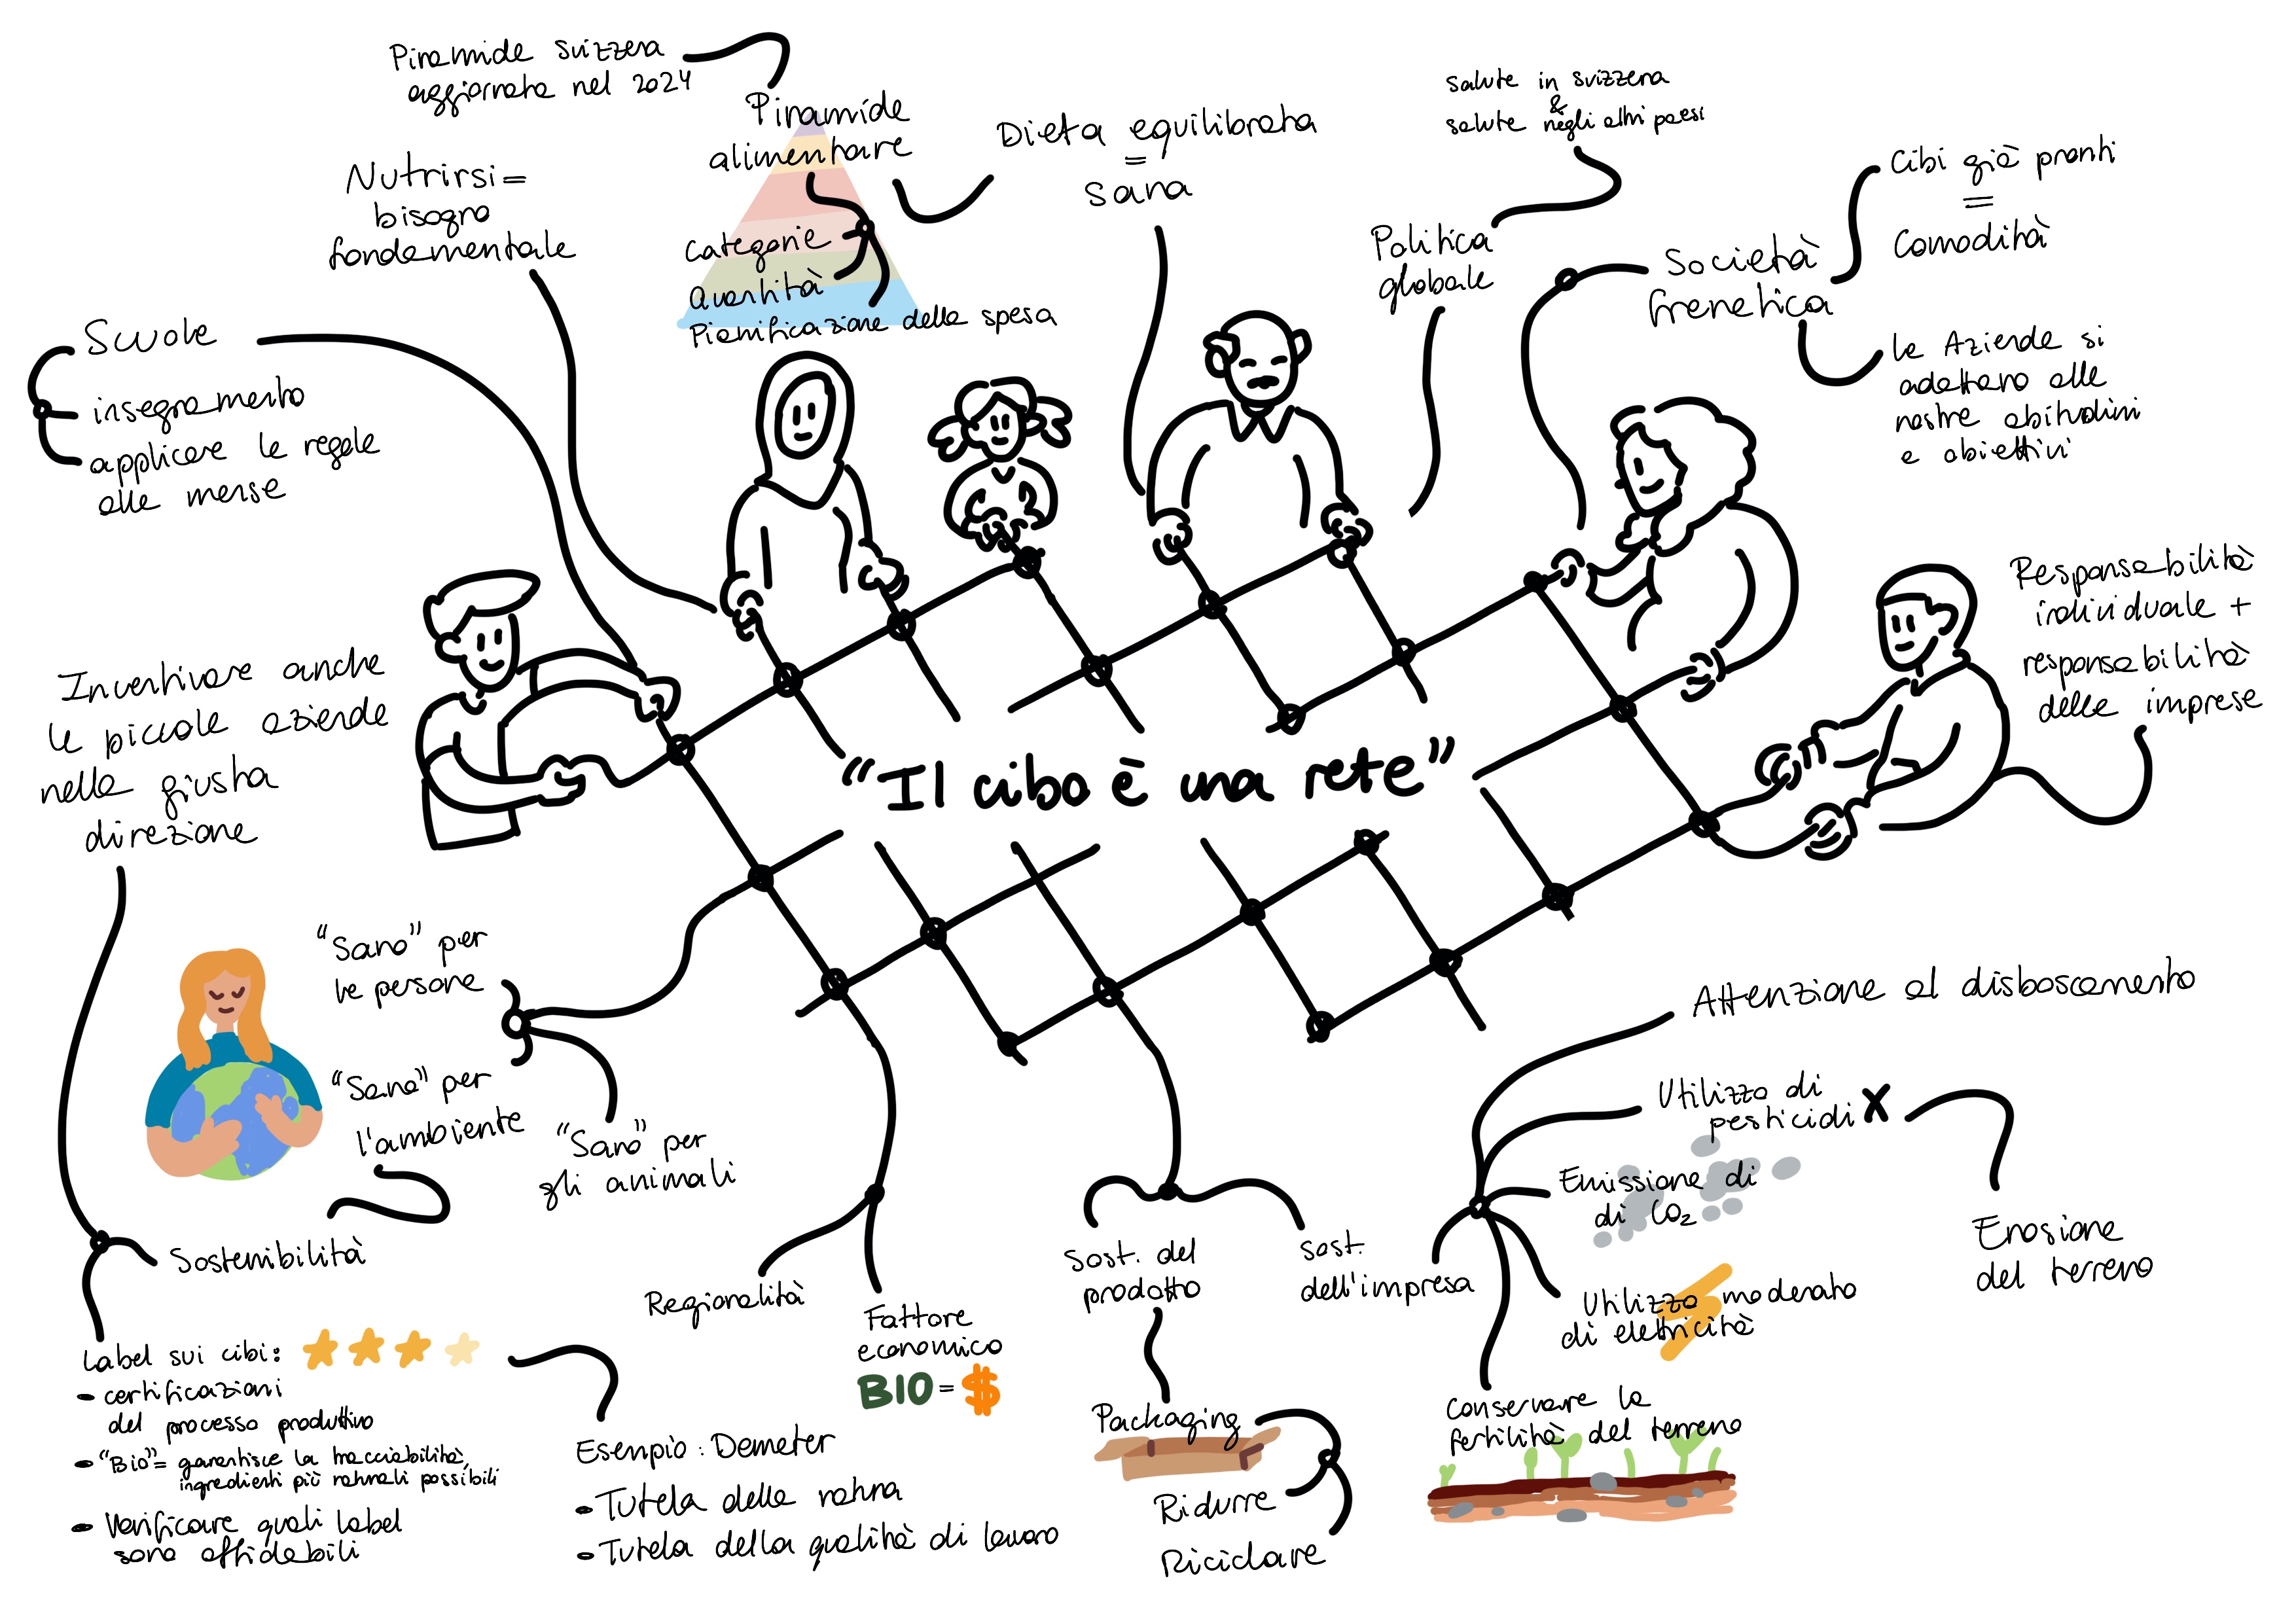 Piramide svizzera
aggiornata nel 2024
Piramide
alimentare
Categorie
Quantità
Pianificazione della spesa
Dieta equilibrata
=
sana
salute in svizzera
&
salute negli altri paesi
Politica
globale
Società
frenetica
Cibi già pronti
=
Comodità
le Aziende si
adattano alle
nostre abitudini
e obiettivi
Nutrirsi =
bisogno
fondamentale
Scuole
insegnamento
applicare le regole
alle mense
Responsabilità
individuale +
responsabilità
delle imprese
Incentivare anche
le piccole aziende
nella giusta
direzione
"Il cibo è una rete"
"Sano" per
le persone
"Sano" per
l'ambiente
"Sano" per
gli animali
Sostenibilità
Label sui cibi:
- certificazioni
del processo produttivo
- "Bio" = garantisce la tracciabilità,
ingredienti più naturali possibili
- Verificare quali label
sono affidabili
Esempio: Demeter
- Tutela della natura
- Tutela della qualità di lavoro
Regionalità
Fattore
economico
BIO = $
Sost. del
prodotto
Sost.
dell'impresa
Packaging
Ridurre
Riciclare
Attenzione al disboscamento
Utilizzo di
pesticidi X
Erosione
del terreno
Emissione di
di CO₂
Utilizzo moderato
di elettricità
Conservare la
fertilità del terreno